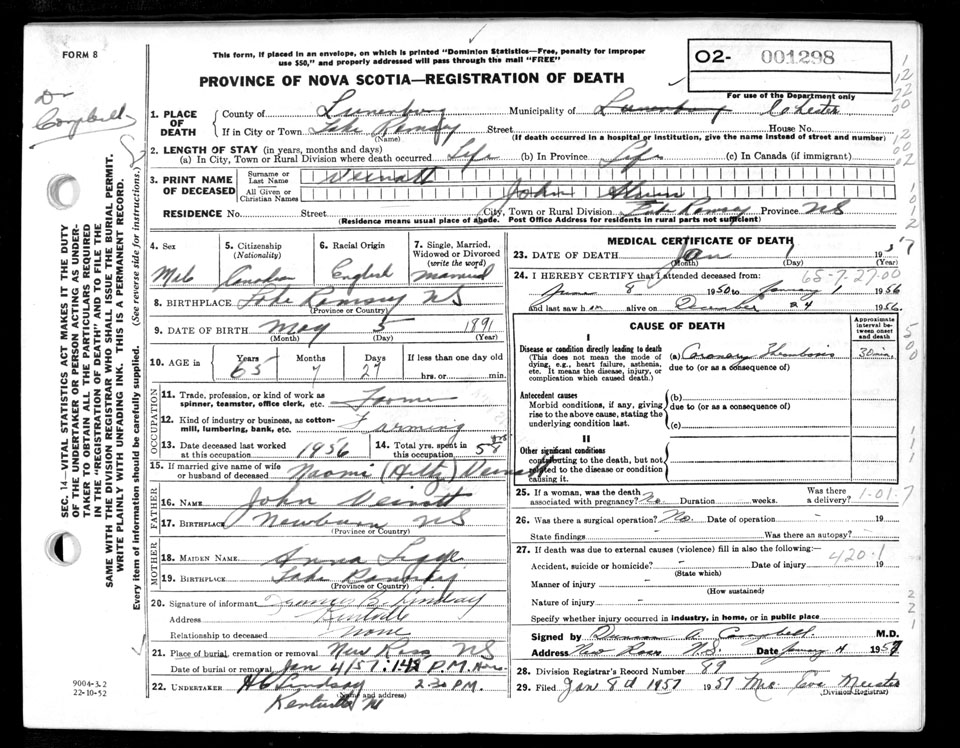 FORM 8
This form, if placed in an envelope, on which is printed "Dominion Statistics—Free, penalty for improper
use $50," and properly addressed will pass through the mail "FREE"
O2- 001298
For use of the Department only
PROVINCE OF NOVA SCOTIA—REGISTRATION OF DEATH
Dr
Campbell
1. PLACE OF DEATH
County of Lunenburg Municipality of Lunenburg Chester
If in City or Town Lake Ramsay Street House No.
(Name) (If death occurred in a hospital or institution, give the name instead of street and number)
2. LENGTH OF STAY (in years, months and days)
(a) In City, Town or Rural Division where death occurred Life (b) In Province Life (c) In Canada (if immigrant)
3. PRINT NAME OF DECEASED
Surname or Last Name Veinott
All Given or Christian Names John
RESIDENCE No. Street City, Town or Rural Division Lake Ramsay Province NS
(Residence means usual place of abode. Post Office Address for residents in rural parts not sufficient)
4. Sex Male
5. Citizenship (Nationality) Canadian
6. Racial Origin English
7. Single, Married, Widowed or Divorced (write the word) married
8. BIRTHPLACE Lake Ramsay NS
(Province or Country)
9. DATE OF BIRTH May 5 1891
(Month) (Day) (Year)
10. AGE in Years 65 Months 7 Days 27 If less than one day old hrs. or min.
OCCUPATION
11. Trade, profession, or kind of work as spinner, teamster, office clerk, etc. Farmer
12. Kind of industry or business, as cotton-mill, lumbering, bank, etc. Farming
13. Date deceased last worked at this occupation 1956
14. Total yrs. spent in this occupation 58 yrs
15. If married give name of wife or husband of deceased Naomi (Hiltz) Veinott
FATHER
16. NAME John Veinott
17. BIRTHPLACE Newburn NS
(Province or Country)
MOTHER
18. MAIDEN NAME Anna
19. BIRTHPLACE Lake
(Province or Country)
20. Signature of informant Francis B. Lindsay
Address Kentville
Relationship to deceased none
21. Place of burial, cremation or removal New Ross NS
Date of burial or removal Jan 4/57 P.M.
22. UNDERTAKER H C Lindsay 2 30 P.M.
(Name and address)
Kentville NS
MEDICAL CERTIFICATE OF DEATH
23. DATE OF DEATH Jan 1 57
(Month) (Day) (Year)
65-7-27-00
24. I HEREBY CERTIFY that I attended deceased from:
June 8 1950 to January 1 1956
and last saw him alive on December 24 1956
CAUSE OF DEATH
Approximate interval between onset and death
I
Disease or condition directly leading to death
(This does not mean the mode of dying, e.g., heart failure, asthenia, etc. It means the disease, injury, or complication which caused death.)
(a) Coronary Thrombosis 30 min.
due to (or as a consequence of)
Antecedent causes
Morbid conditions, if any, giving rise to the above cause, stating the underlying condition last.
(b)
due to (or as a consequence of)
(c)
II
Other significant conditions
contributing to the death, but not related to the disease or condition causing it.
25. If a woman, was the death associated with pregnancy? No Duration weeks. Was there a delivery?
1-01-7
26. Was there a surgical operation? No. Date of operation - 19
State findings - Was there an autopsy? -
27. If death was due to external causes (violence) fill in also the following:—
420.1
Accident, suicide or homicide? - Date of injury 19
(State which)
Manner of injury -
(How sustained)
Nature of injury -
Specify whether injury occurred in industry, in home, or in public place
Signed by A. Campbell M.D.
Address New Ross N.S. Date January 4 1957
28. Division Registrar's Record Number 89
29. Filed Jan 8d 1957 1957 Mrs Eva Meister
(Division Registrar)
SEC. 14—VITAL STATISTICS ACT MAKES IT THE DUTY
OF THE UNDERTAKER OR PERSON ACTING AS UNDER-
TAKER TO OBTAIN ALL THE PARTICULARS REQUIRED
IN THE "REGISTRATION OF DEATH" AND TO FILE THE
SAME WITH THE DIVISION REGISTRAR WHO SHALL ISSUE THE BURIAL PERMIT.
WRITE PLAINLY WITH UNFADING INK. THIS IS A PERMANENT RECORD.
Every item of information should be carefully supplied. (See reverse side for instructions.)
9004-3.2
22-10-52